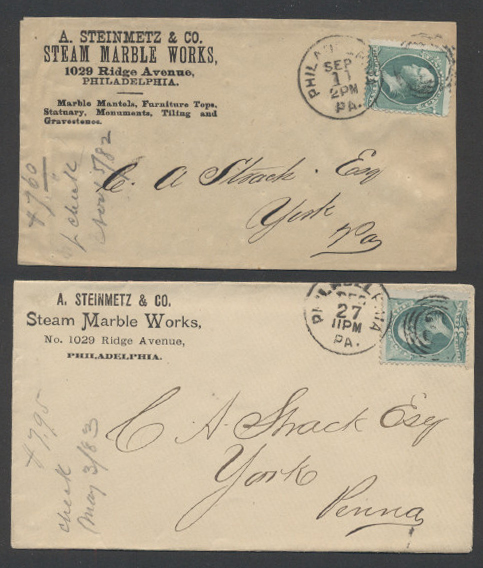 A. STEINMETZ & CO.
STEAM MARBLE WORKS,
1029 Ridge Avenue,
PHILADELPHIA.
Marble Mantels, Furniture Tops,
Statuary, Monuments, Tiling and
Gravestones.
PHILADEL
SEP
11
2PM
PA.
C. A Strack. Esq
York
Pa
$7.60
check
/82
A. STEINMETZ & CO.
Steam Marble Works,
No. 1029 Ridge Avenue,
PHILADELPHIA.
PHILADELPHIA
DEC
27
11PM
PA.
C A Strack Esq
York
Penna
$7.95
check
May 3/83